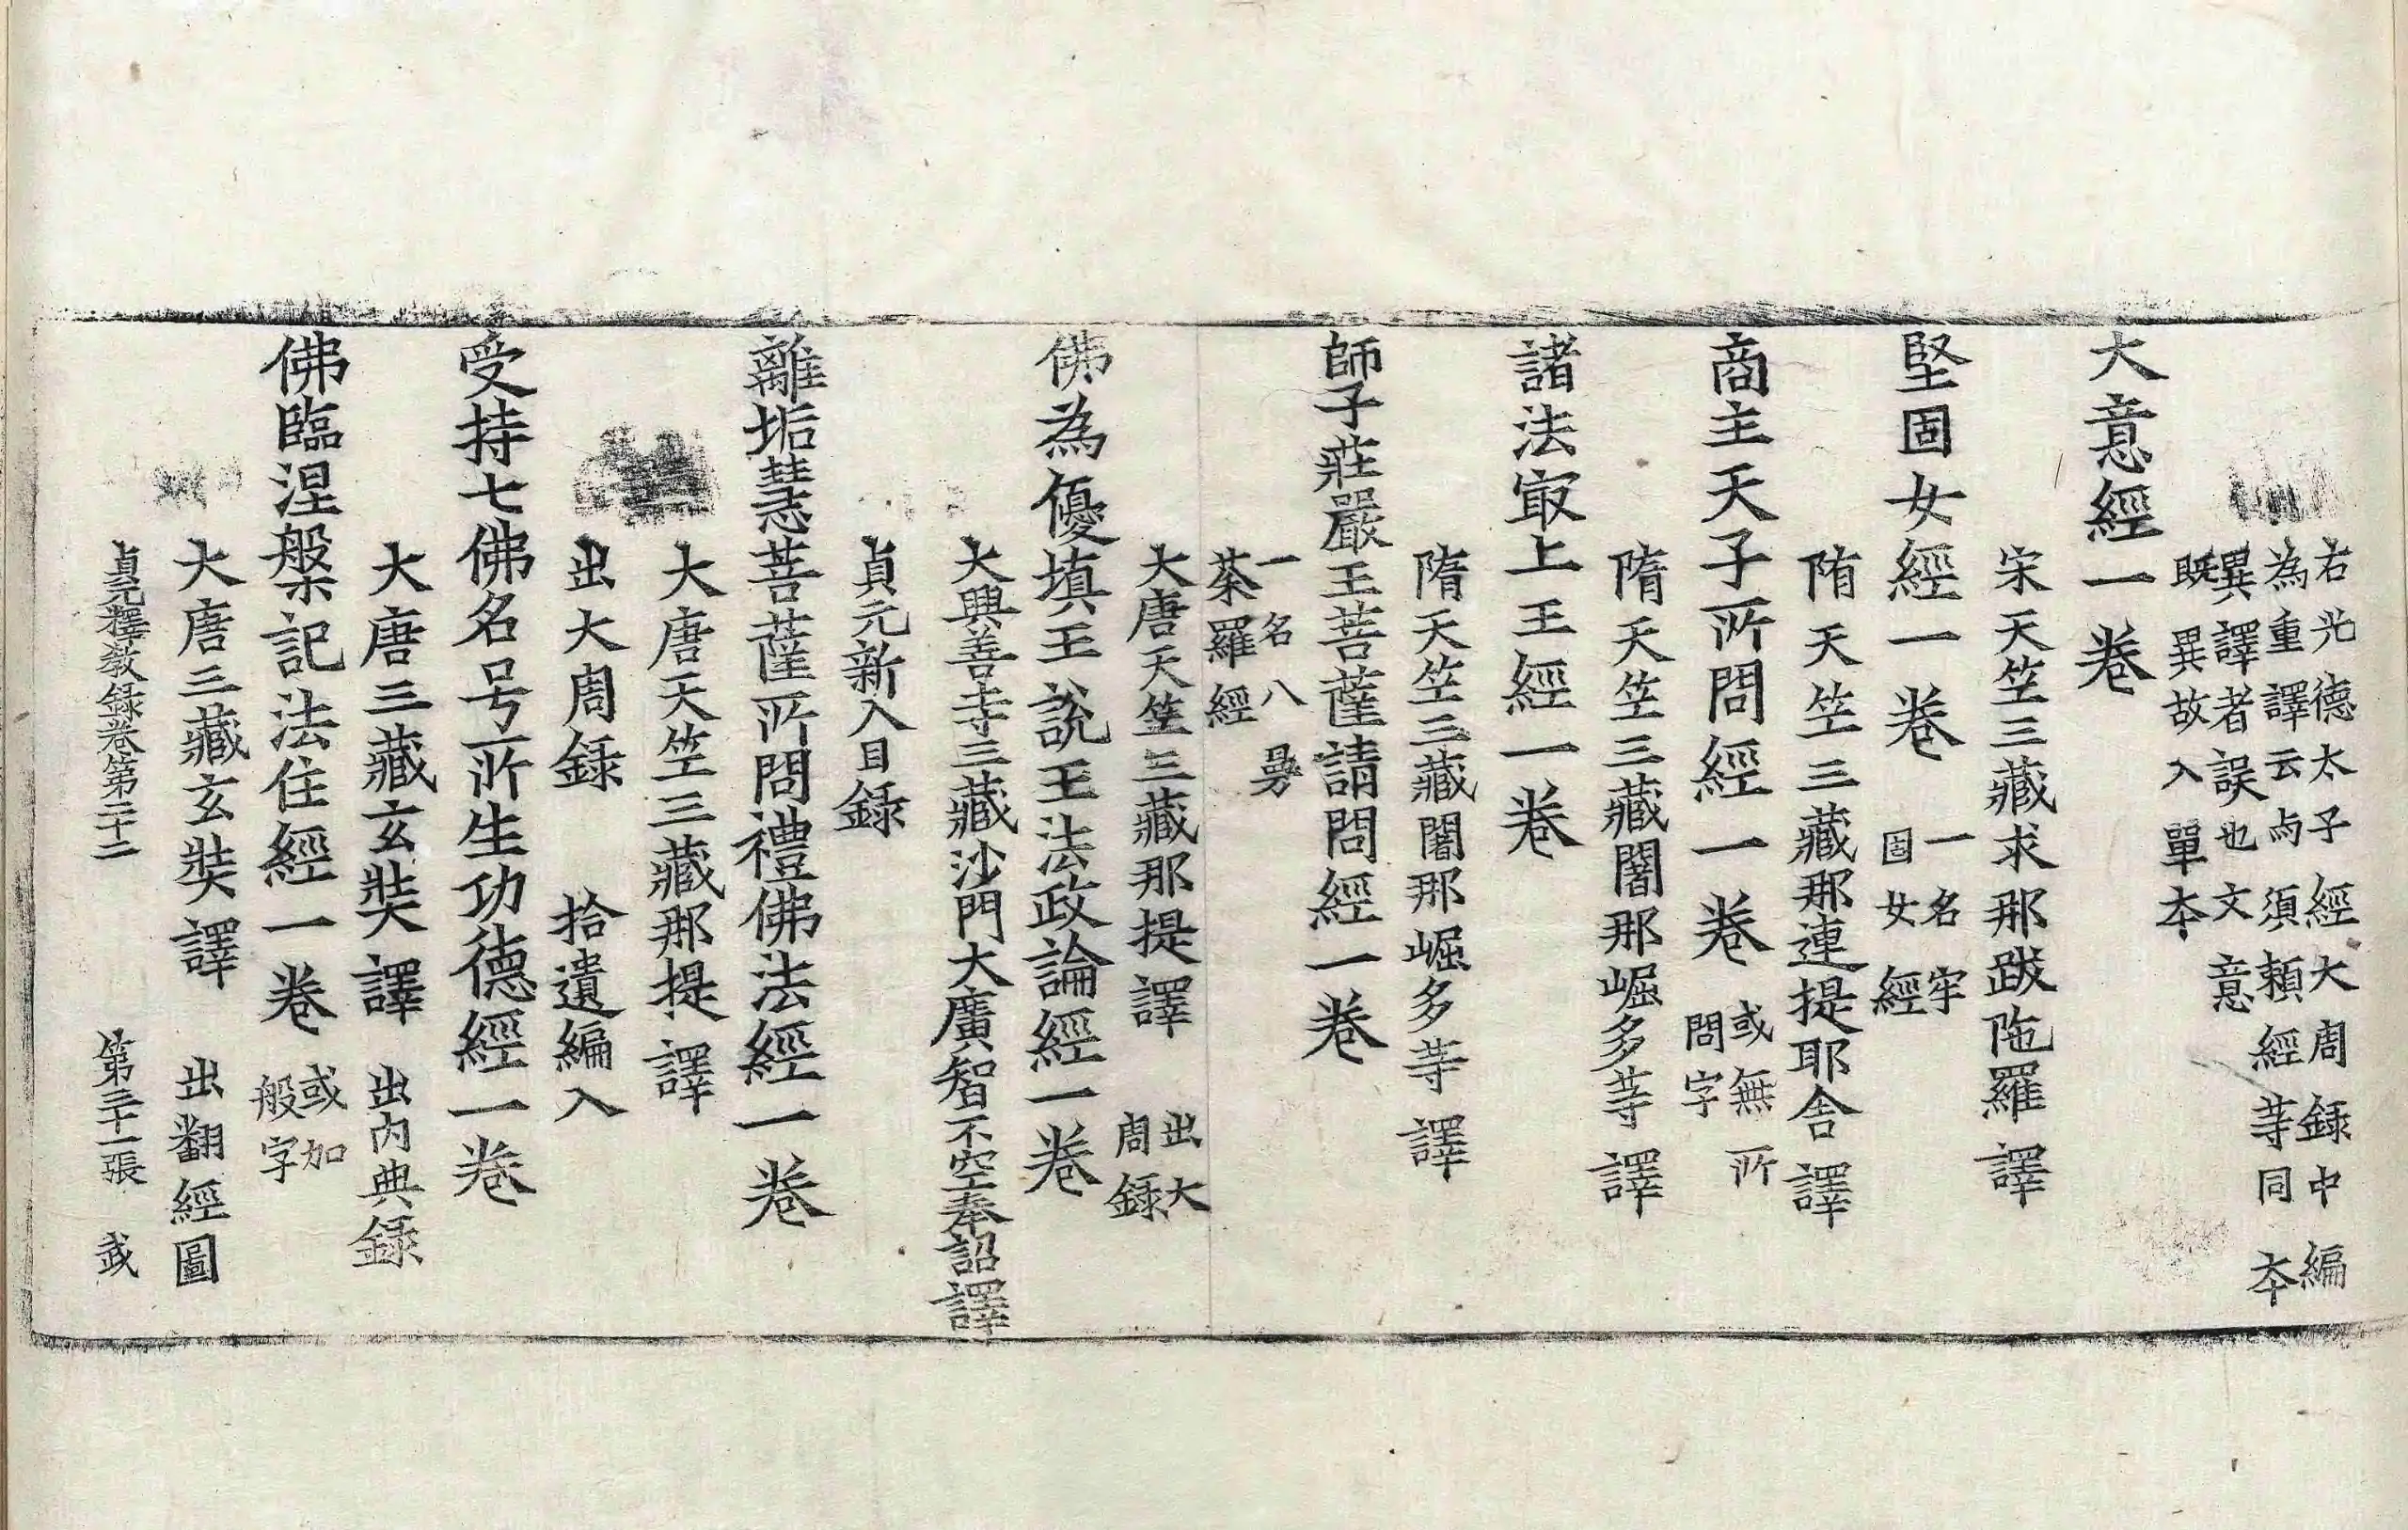 右光德太子經大周錄中編
為重譯云与須頼經䓁同夲
異譯者誤也文意
旣異故入單夲
大意經一卷
宋天竺三藏求那跋陁羅譯
堅固女經一卷 一名牢固女經
隋天竺三藏那連提耶舍譯
商主天子所問經一卷 或無所問字
隋天竺三藏闍那崛多䓁譯
諸法㝡上王經一卷
隋天竺三藏闍那崛多䓁譯
師子莊嚴王菩薩請問經一卷
一名八曼
茶羅經
大唐天竺三藏那提譯 出大周錄
佛為優填王說王法政論經一卷
大興善寺三藏沙門大廣智不空奉詔譯
貞元新入目錄
離垢慧菩薩所問禮佛法經一卷
大唐天竺三藏那提譯
出大周錄 拾遺編入
受持七佛名号所生功德經一卷
大唐三藏玄奘譯 出內典錄
佛臨涅槃記法住經一卷 或加般字
大唐三藏玄奘譯 出翻經圖
貞元釋教錄卷第二十二 第三十一張 㦯